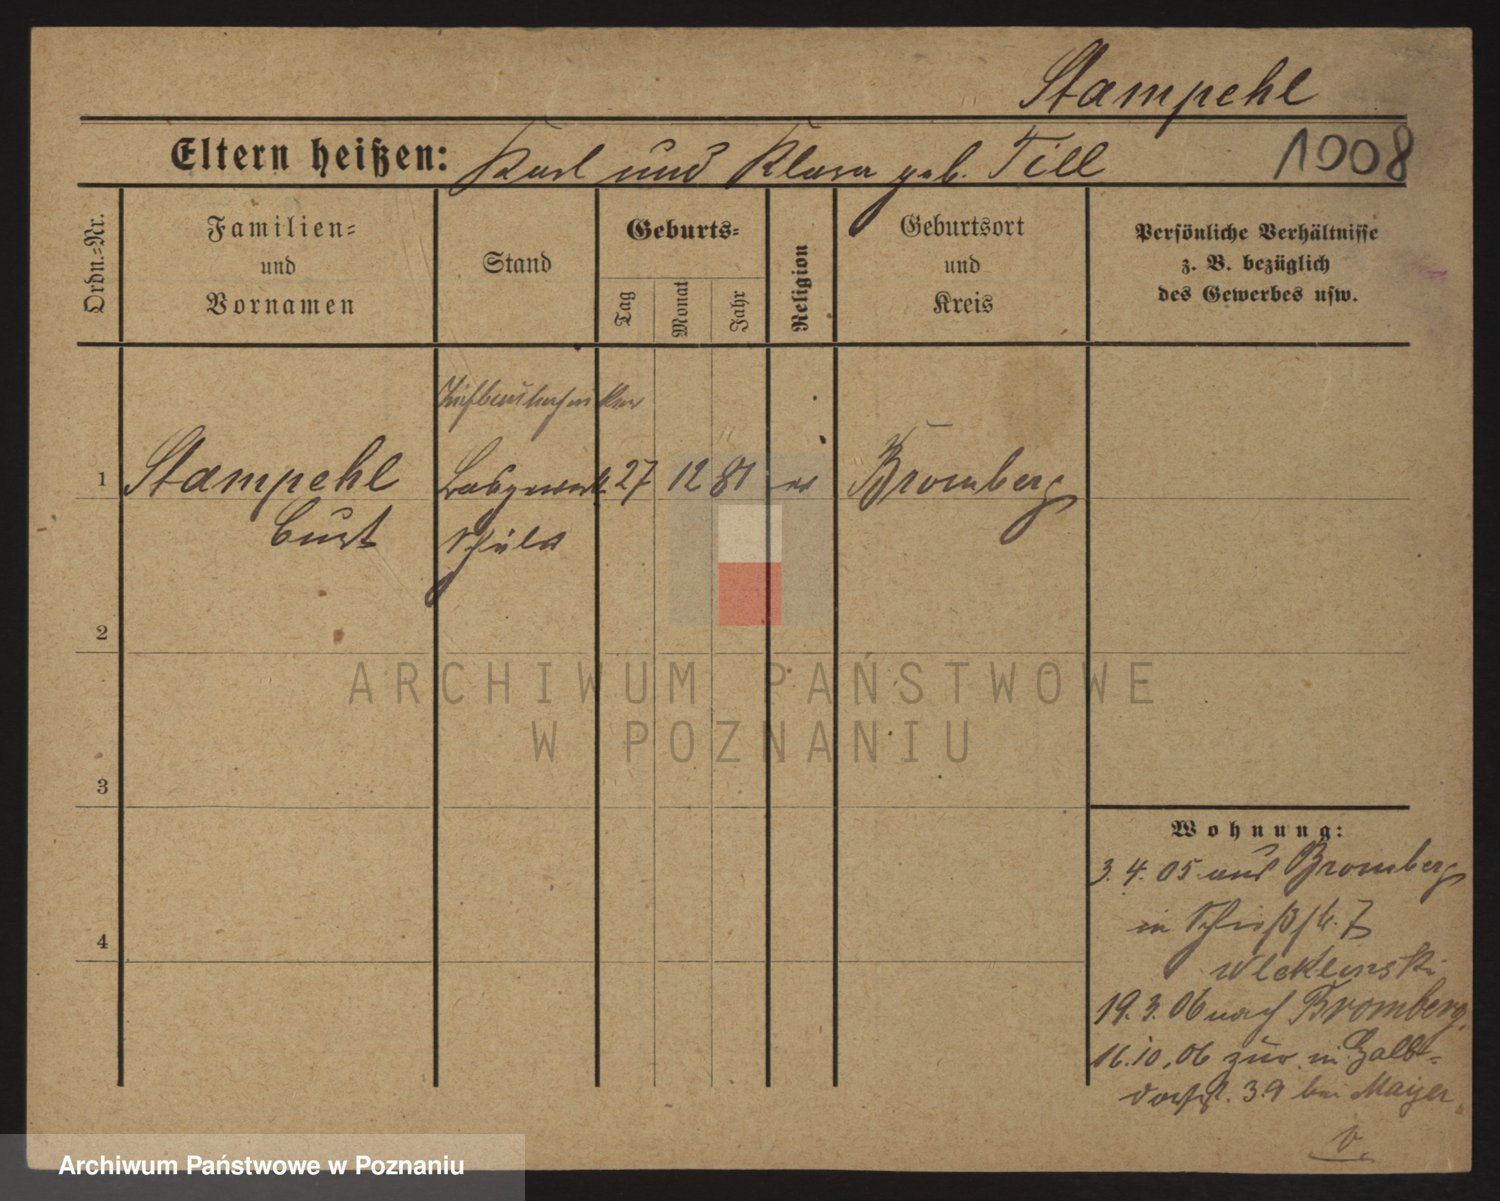 Stampehl
Eltern heißen: Karl und Klara geb. Till
1008
Ordn.-Nr.
Familien-
und
Vornamen
Stand
Geburts-
Tag
Monat
Jahr
Religion
Geburtsort
und
Kreis
Persönliche Verhältnisse
z. B. bezüglich
des Gewerbes usw.
1 Stampehl 27 12 81 ev Bromberg
Curt Schüler
2
3
4
Wohnung:
3. 4. 05 aus Bromberg
in Schießstr. 7
19. 3. 06 nach Bromberg.
16. 10. 06 zur. in Halb-
dorfstr. 39 bei Mayer
v.
ARCHIWUM PAŃSTWOWE
W POZNANIU
Archiwum Państwowe w Poznaniu